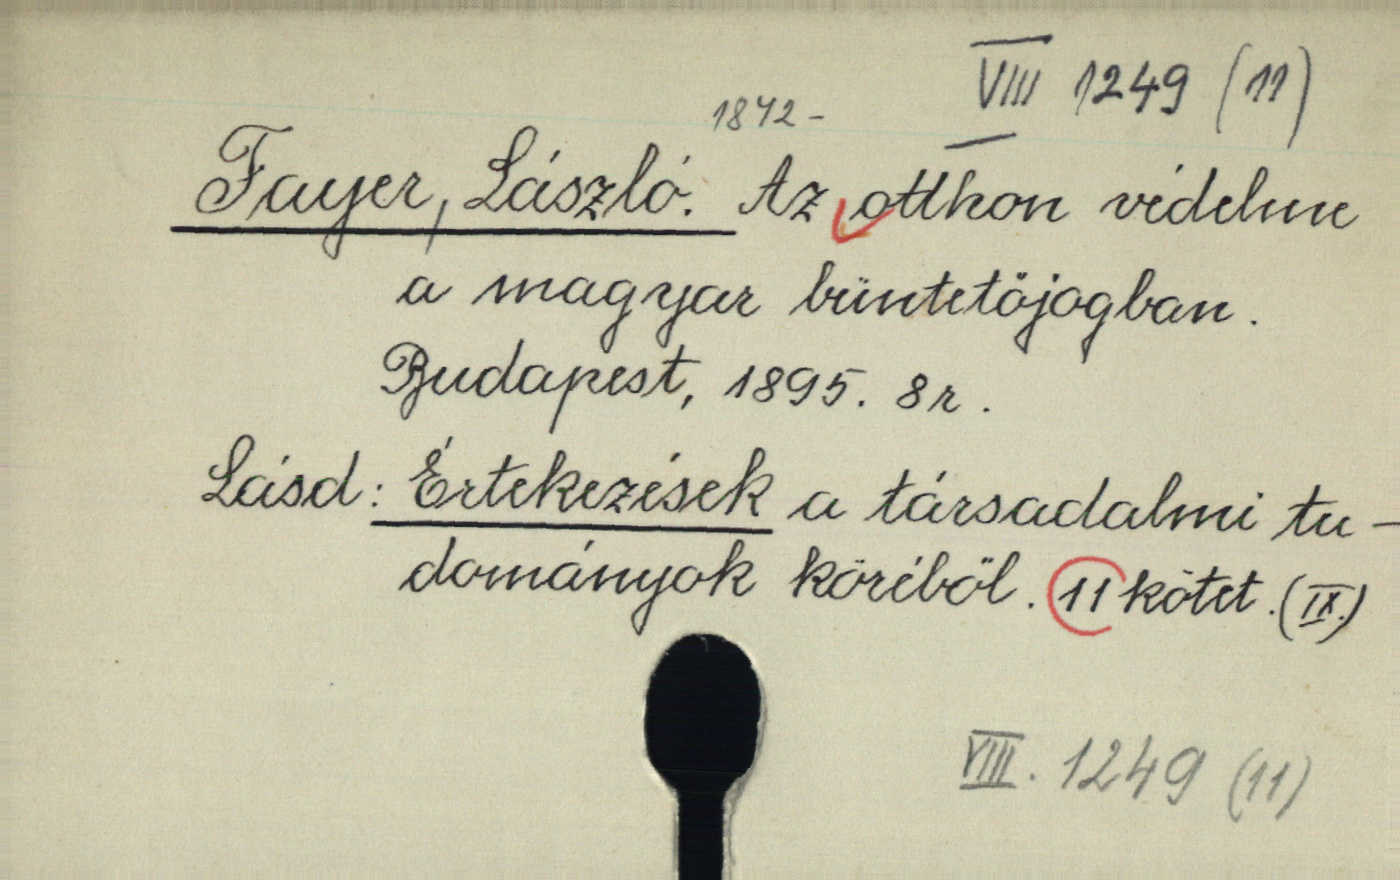 VIII 1249 (11)
1842-
Fayer, László. Az otthon védelme
a magyar büntetőjogban.
Budapest, 1895. 8r.
Lásd: Értekezések a társadalmi tu-
dományok köréből. 11 kötet. (IX.)
VIII. 1249 (11)